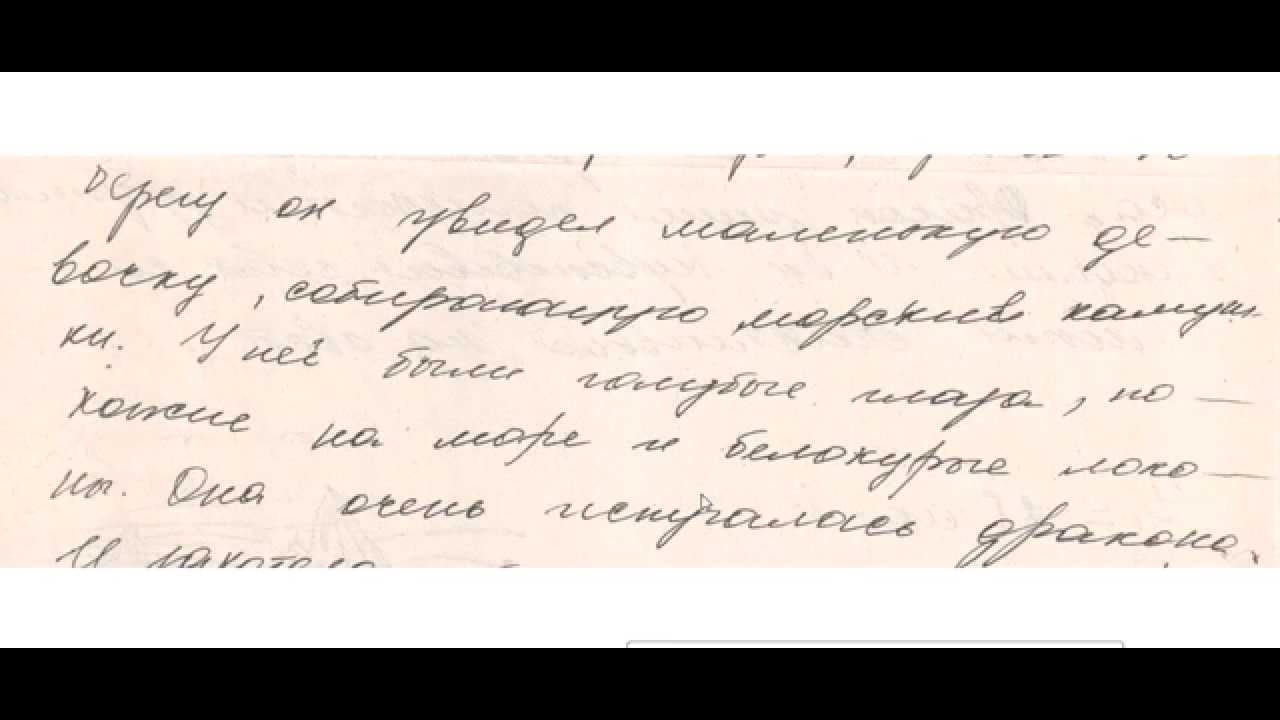 берегу он увидел маленькую де-
вочку, собирающую морские камуш
ки. У неё были голубые глаза, по-
хожие на море и белокурые локо-
ны. Она очень испугалась дракона.
И захотела